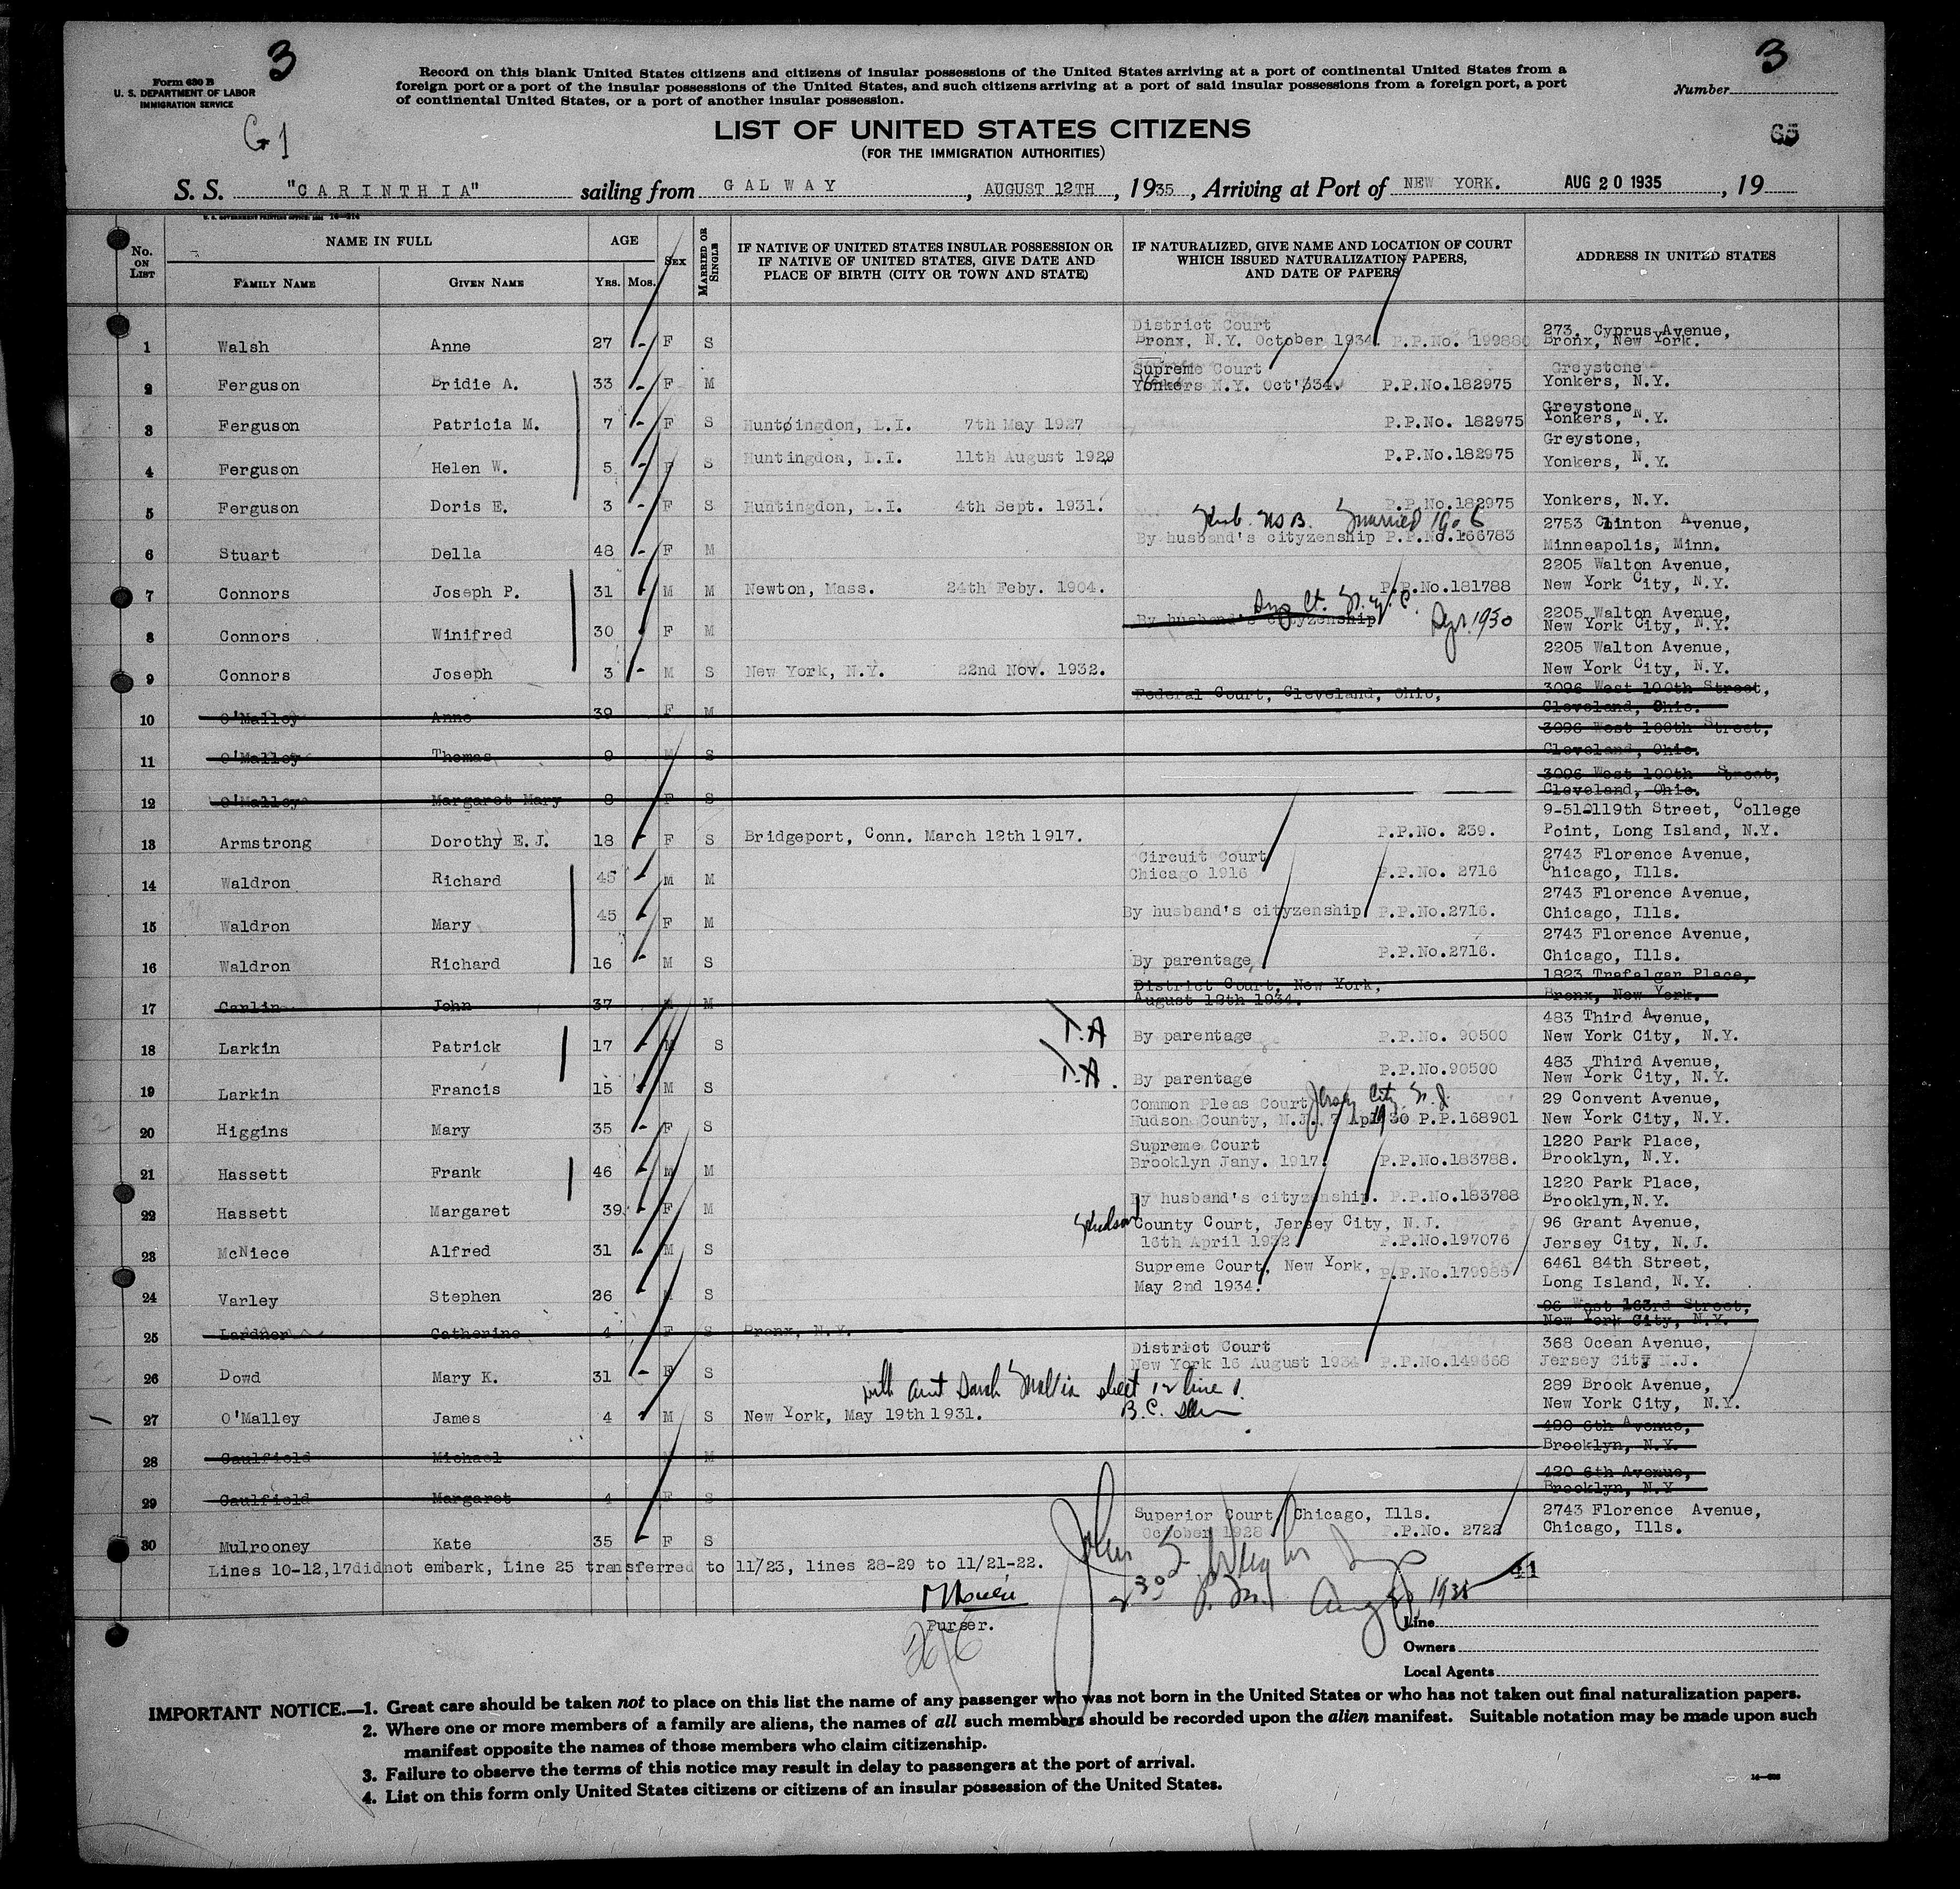 3
3
Form 630 B
U. S. DEPARTMENT OF LABOR
IMMIGRATION SERVICE
G1
Record on this blank United States citizens and citizens of insular possessions of the United States arriving at a port of continental United States from a
foreign port or a port of the insular possessions of the United States, and such citizens arriving at a port of said insular possessions from a foreign port, a port
of continental United States, or a port of another insular possession.
Number
LIST OF UNITED STATES CITIZENS
(FOR THE IMMIGRATION AUTHORITIES)
65
S. S. "CARINTHIA" sailing from GALWAY, AUGUST 12TH, 1935, Arriving at Port of NEW YORK. AUG 20 1935, 19
No. ON LIST
NAME IN FULL
FAMILY NAME
GIVEN NAME
AGE
YRS. MOS.
SEX
MARRIED OR SINGLE
IF NATIVE OF UNITED STATES INSULAR POSSESSION OR
IF NATIVE OF UNITED STATES, GIVE DATE AND
PLACE OF BIRTH (CITY OR TOWN AND STATE)
IF NATURALIZED, GIVE NAME AND LOCATION OF COURT
WHICH ISSUED NATURALIZATION PAPERS,
AND DATE OF PAPERS
ADDRESS IN UNITED STATES
1 Walsh Anne 27 - F S District Court
Bronx, N.Y. October 1934. P.P.No. 199880 273, Cyprus Avenue,
Bronx, New York.
2 Ferguson Bridie A. 33 - F M Supreme Court
Yonkers N.Y. Oct'334. P.P.No.182975 Greystone
Yonkers, N.Y.
3 Ferguson Patricia M. 7 - F S Huntøingdon, L.I. 7th May 1927 P.P.No. 182975 Greystone
Yonkers, N.Y.
4 Ferguson Helen W. 5 - F S Huntingdon, L.I. 11th August 1929 P.P.No.182975 Greystone,
Yonkers, N.Y.
5 Ferguson Doris E. 3 - F S Huntingdon, L.I. 4th Sept. 1931. P.P.No.182975 Yonkers, N.Y.
Married 1906
6 Stuart Della 48 - F M By husband's cityzenship P.P.No.166783 2753 Clinton Avenue,
Minneapolis, Minn.
7 Connors Joseph P. 31 - M M Newton, Mass. 24th Feby. 1904. P.P.No.181788 2205 Walton Avenue,
New York City, N.Y.
Sup Ct. N.Y.C.
8 Connors Winifred 30 F M By husband's cityzenship 1930 2205 Walton Avenue,
New York City, N.Y.
9 Connors Joseph 3 - M S New York, N.Y. 22nd Nov. 1932. 2205 Walton Avenue,
New York City, N.Y.
10 O'Malley Anne 39 F M Federal Court, Cleveland, Ohio, 3096 West 100th Street,
Cleveland, Ohio.
11 O'Malley Thomas 9 M S 3096 West 100th Street,
Cleveland, Ohio.
12 O'Malley Margaret Mary 8 F S 3096 West 100th Street,
Cleveland, Ohio.
13 Armstrong Dorothy E.J. 18 - F S Bridgeport, Conn. March 12th 1917. P.P.No. 239. 9-510119th Street, College
Point, Long Island, N.Y.
14 Waldron Richard 45 - M M Circuit Court
Chicago 1916 P.P.No. 2716 2743 Florence Avenue,
Chicago, Ills.
15 Waldron Mary 45 - F M By husband's cityzenship P.P.No.2716. 2743 Florence Avenue,
Chicago, Ills.
16 Waldron Richard 16 - M S By parentage P.P.No.2716. 2743 Florence Avenue,
Chicago, Ills.
17 Carlin John 37 M M District Court, New York,
August 12th 1934. 1823 Trafalgar Place,
Bronx, New York.
18 Larkin Patrick 17 - M S T.A By parentage P.P.No. 90500 483 Third Avenue,
New York City, N.Y.
19 Larkin Francis 15 - M S T.A. By parentage P.P.No.90500 483 Third Avenue,
New York City, N.Y.
20 Higgins Mary 35 - F S Common Pleas Court Jersey City N.J.
Hudson County, N.J. 7 April 30 P.P.168901 29 Convent Avenue,
New York City, N.Y.
21 Hassett Frank 46 - M M Supreme Court
Brooklyn Jany. 1917. P.P.No.183788. 1220 Park Place,
Brooklyn, N.Y.
22 Hassett Margaret 39 - F M By husband's cityzenship. P.P.No.183788 1220 Park Place,
Brooklyn, N.Y.
23 McNiece Alfred 31 - M S Hudson County Court, Jersey City, N.J.
16th April 1932 P.P.No.197076 96 Grant Avenue,
Jersey City, N.J.
24 Varley Stephen 26 - M S Supreme Court, New York,
May 2nd 1934. P.P.No.179985 6461 84th Street,
Long Island, N.Y.
25 Lardner Catherine 4 F S Bronx, N.Y. 96 West 163rd Street,
New York City, N.Y.
26 Dowd Mary K. 31 - F S District Court
New York 16 August 1934 P.P.No.149668 368 Ocean Avenue,
Jersey City N.J.
with aunt Sarah sheet 12 line 1.
27 O'Malley James 4 - M S New York, May 19th 1931. B.C. 289 Brook Avenue,
New York City, N.Y.
28 Caulfield Michael M M 420 6th Avenue,
Brooklyn, N.Y.
29 Caulfield Margaret 4 F S 420 6th Avenue,
Brooklyn, N.Y
30 Mulrooney Kate 35 - F S Superior Court, Chicago, Ills.
October 1928 P.P.No. 2722 2743 Florence Avenue,
Chicago, Ills.
Lines 10-12,17didnot embark, Line 25 transferred to 11/23, lines 28-29 to 11/21-22.
41
Purser.
Line
Owners
Local Agents
IMPORTANT NOTICE.—1. Great care should be taken not to place on this list the name of any passenger who was not born in the United States or who has not taken out final naturalization papers.
2. Where one or more members of a family are aliens, the names of all such members should be recorded upon the alien manifest. Suitable notation may be made upon such
manifest opposite the names of those members who claim citizenship.
3. Failure to observe the terms of this notice may result in delay to passengers at the port of arrival.
4. List on this form only United States citizens or citizens of an insular possession of the United States.